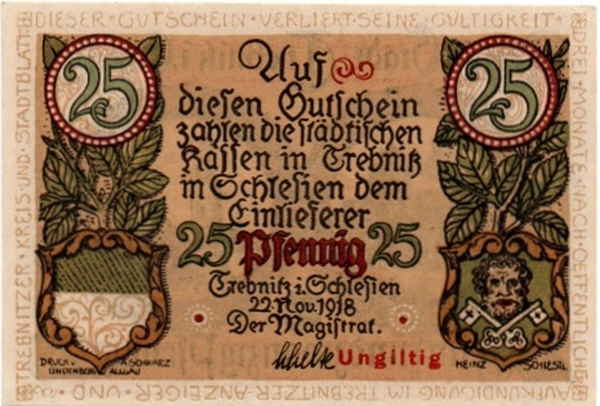 DIESER · GUTSCHEIN · VERLIERT · SEINE · GÜLTIGKEIT
DREI · MONATE · NACH · OEFFENTLICHER
AUFKÜNDIGUNG · IM · TREBNITZER-ANZEIGER · UND
TREBNITZER · KREIS- UND · STADTBLATT
25
25
Auf
diesen Gutschein
zahlen die städtischen
Kassen in Trebnitz
in Schlesien dem
Einlieferer
25 Pfennig 25
Trebnitz i. Schlesien
22. Nov. 1918
Der Magistrat.
Ungiltig
DRUCK V. A. SCHWARZ
LINDENBERG I. ALLGÄU
HEINZ SCHIESTL